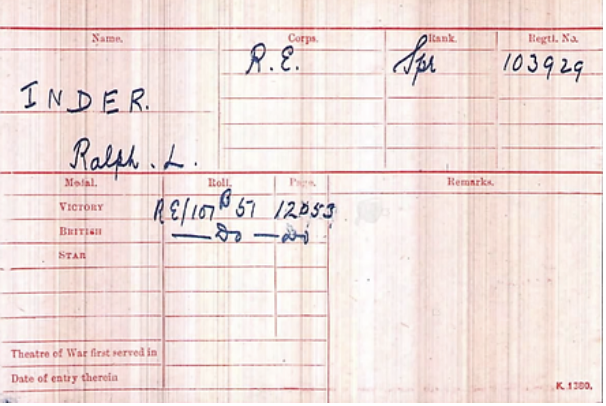 Name. Corps. Rank. Regtl. No.
R.E. Spr 103929
INDER.
Ralph. L.
Medal. Roll. Page. Remarks.
VICTORY RE/101 B 51 12053
BRITISH — Do — Do
STAR
Theatre of War first served in
Date of entry therein
K. 1380.